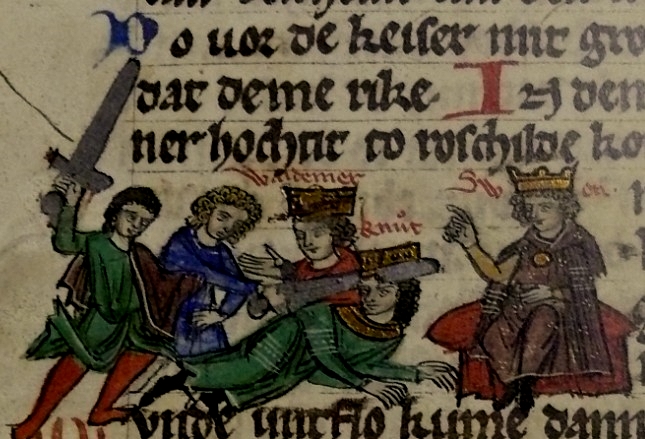 Do uor de keiser mit gro
dat deme rike. In den
ner hochtit to roschilde ko
waldemer
Swen
knut
vnde untflo kunic dann